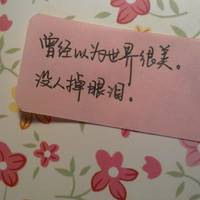 曾经以为世界很美。
没人掉眼泪。